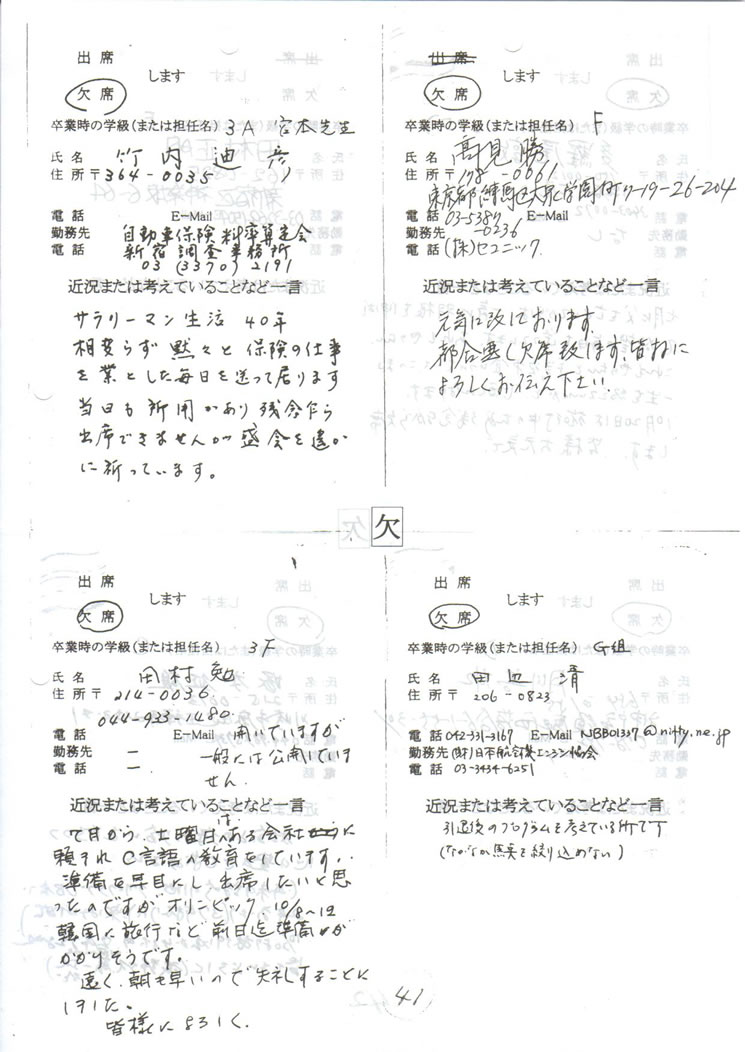 出席
します
欠席
卒業時の学級(または担任名) 3A 宮本先生
氏名 竹内 迪彦
住所〒 364-0035
電話 E-Mail
勤務先 自動車保険料率算定会
電話 新宿調査事務所
03 (3370) 2191
近況または考えていることなど一言
サラリーマン生活 40年
相変らず 黙々と 保険の仕事
を業とした毎日を送って居ります
当日も所用があり残念乍ら
出席できませんが盛会を遙か
に祈っています。
出席
します
欠席
卒業時の学級(または担任名) F
氏名 髙見 勝
住所〒178-0061
東京都練馬区大泉学園町7-19-26-204
電話 03-5387 E-Mail
勤務先 -0236
電話 (株)セコニック
近況または考えていることなど一言
元気に致しております。
都合悪く欠席致します、皆様に
よろしくお伝え下さい。
欠
出席
します
欠席
卒業時の学級(または担任名) 3F
氏名 田村 勉
住所〒 214-0036
044-933-1480
電話 E-Mail 開いていますが
勤務先 ー 一般には公開していま
電話 ー せん
近況または考えていることなど一言
7月から、土曜日はある会社に
頼まれC言語の教育をしています。
準備を早目にし出席したいと思
ったのですがオリンピック 10/8〜12
韓国に旅行など前日迄準備が
かかりそうです。
遠く、朝も早いので失礼することに
しました。
皆様によろしく。
出席
します
欠席
卒業時の学級(または担任名) G組
氏名 田辺 清
住所〒 206-0823
電話 042-331-3167 E-Mail NBB01337@nifty.ne.jp
勤務先 (財)日本航空機エンジン協会
電話 03-3434-6251
近況または考えていることなど一言
引退後のプログラムを考えている所です
(なかなか焦点を絞り込めない)
41